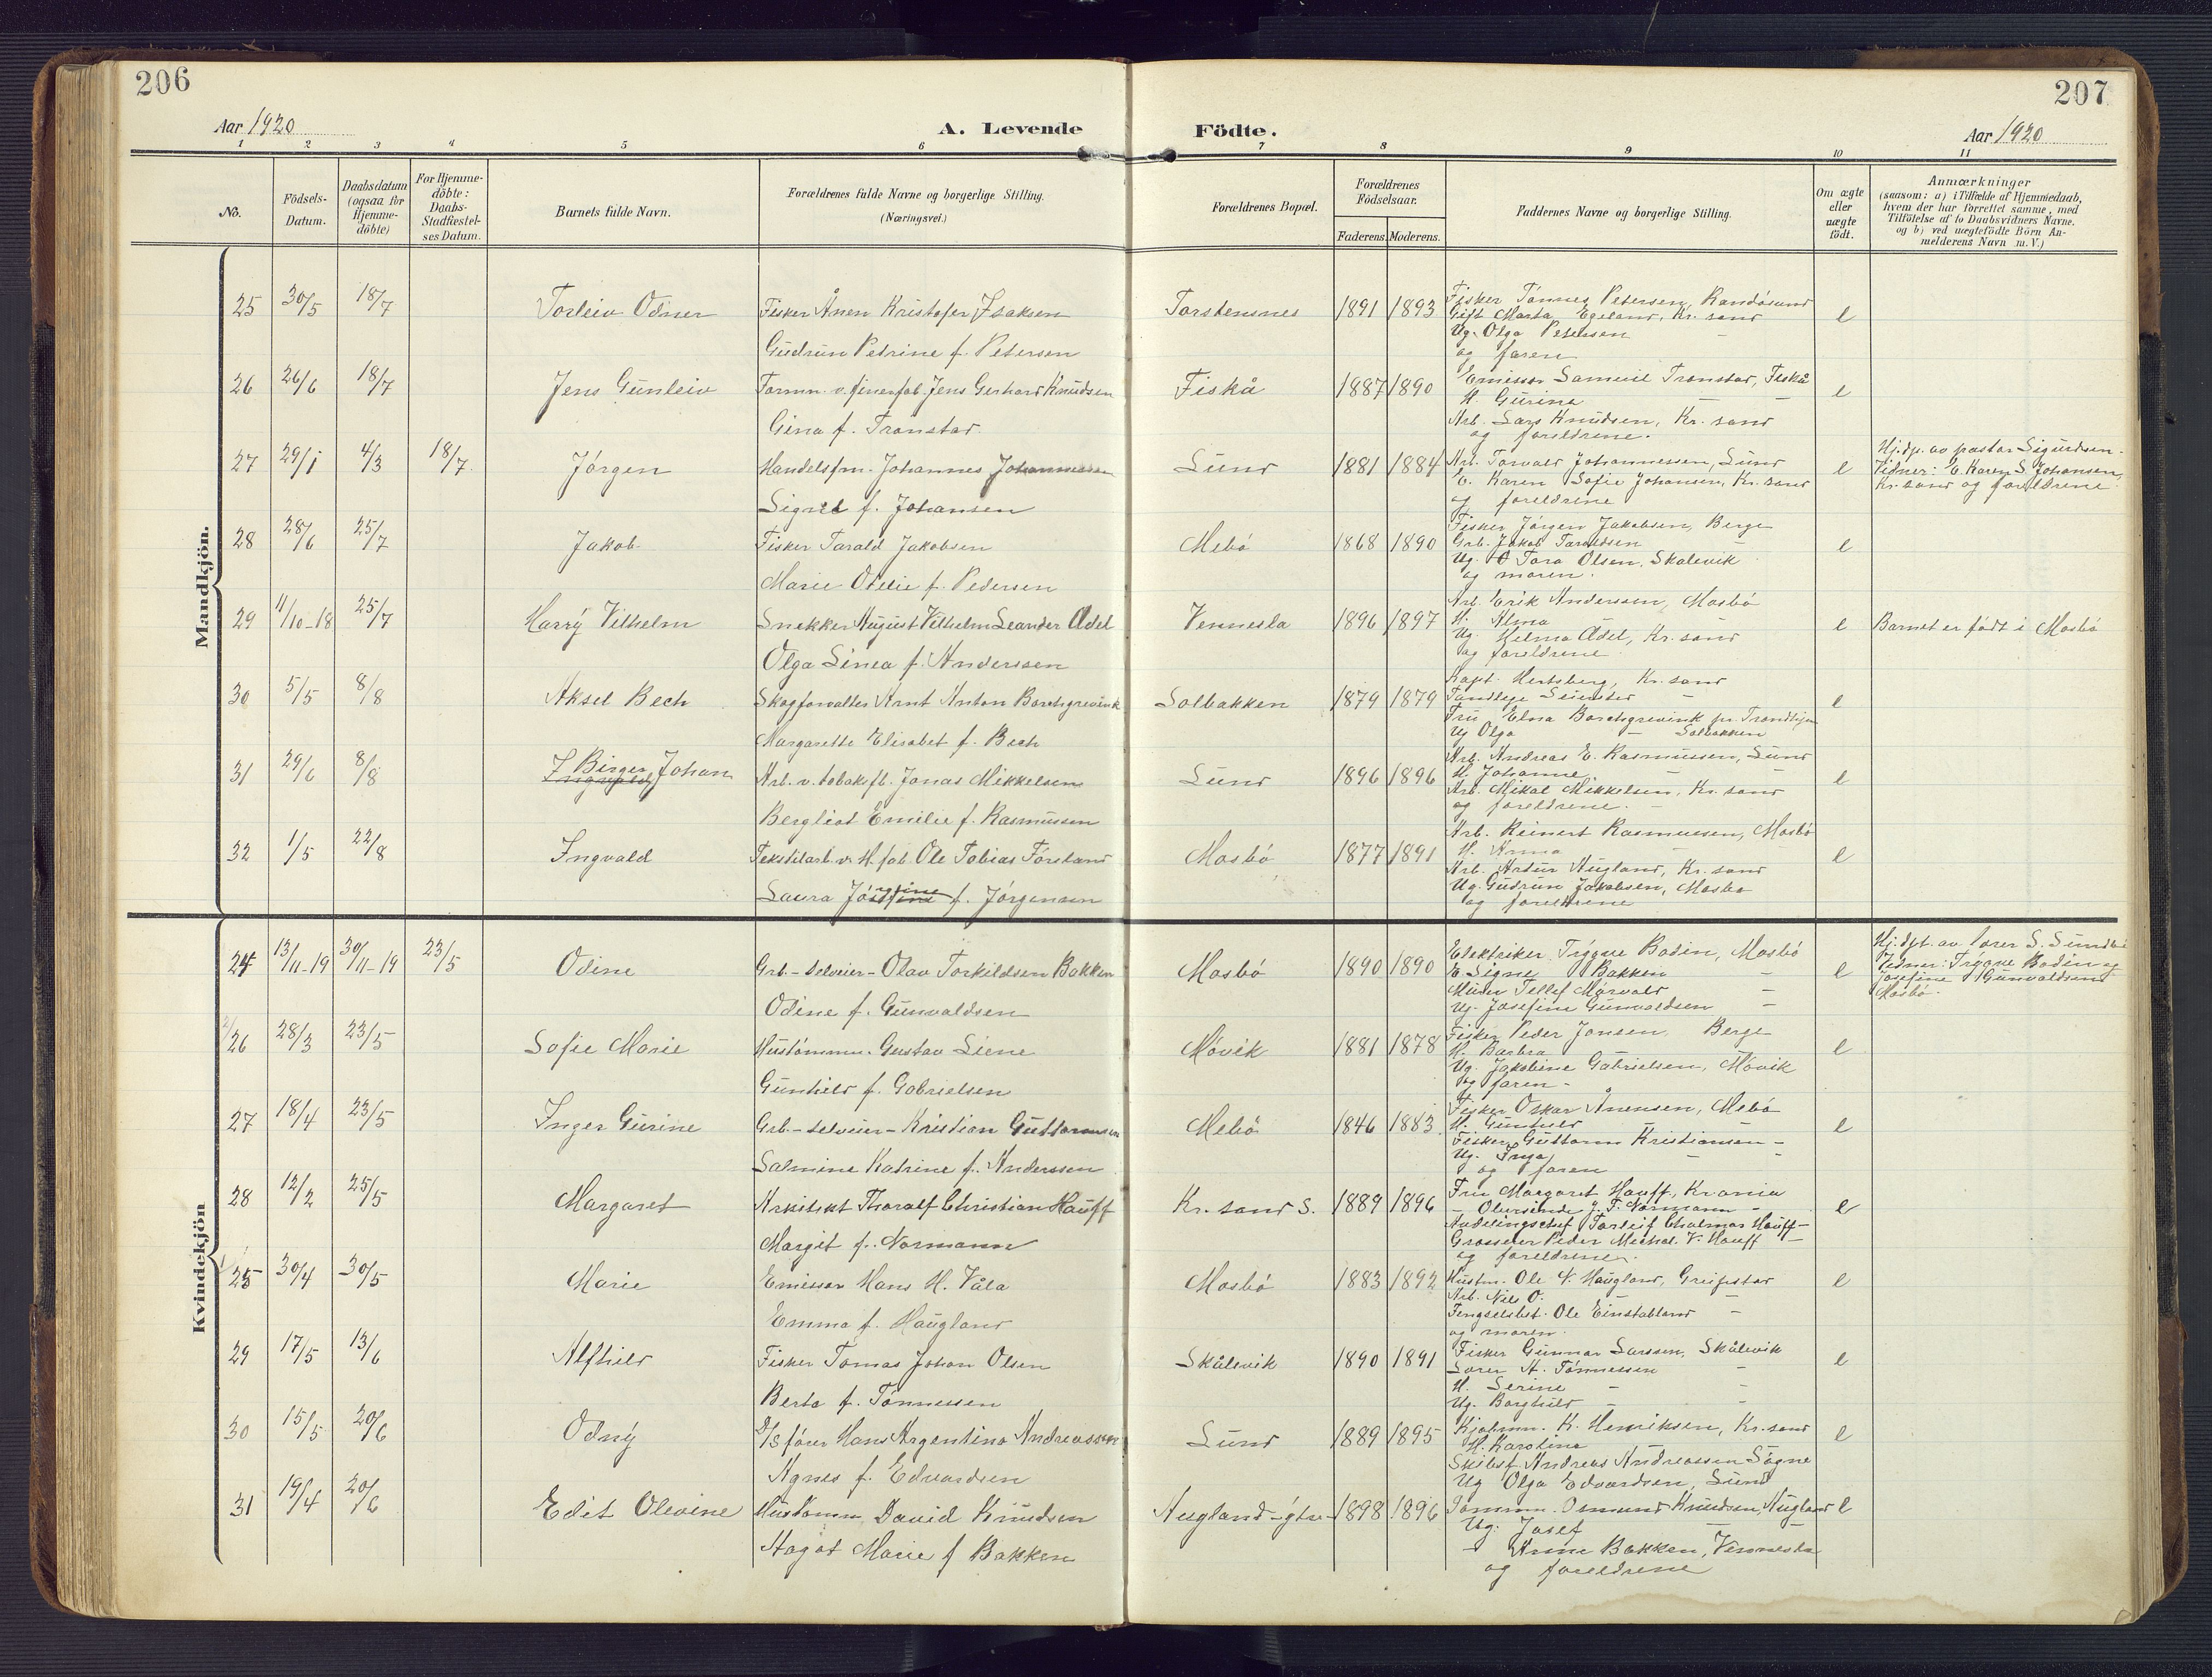 206
207
Aar 1920
A. Levende
Födte.
Aar 1920
1 2 3 4 5 6 7 8 9 10 11
No.
Födsels-
Datum.
Daabsdatum
(ogsaa for
Hjemme-
döbte)
For Hjemme-
döbte:
Daabs-
Stadfæstel-
ses Datum.
Barnets fulde Navn.
Forældrenes fulde Navne og borgerlige Stilling.
(Næringsvei.)
Forældrenes Bopæl.
Forældrenes
Födselsaar.
Faderens. Moderens.
Faddernes Navne og borgerlige Stilling.
Om ægte
eller
uægte
födt.
Anmærkninger
(saasom: a) i Tilfælde af Hjemmedaab,
hvem der har forrettet samme, med
Tilföielse af to Daabsvidners Navne.
og b) ved uægtefödte Börn An-
melderens Navn m.V.)
Mandkjön.
25 30/5 18/7 Torleiv Odner Fisker Ånen Kristofer Isaksen Torstensnes 1891 1893 e
Gudrun Petrine f. Petersen
Fisker Tönnes Petersen, Randösund
Gift Marta Egeland, Kr. sand
Ug. Olga Petersen
og faren
26 26/6 18/7 Jens Gunleiv Formn. v. finerfab. Jens Gerhard Knudsen Fiskå 1887 1890 e
Gina f. Tronstad
Emissær Samuel Tronstad, Fiskå
H. Gurine — —
Arb. Lars Knudsen, Kr. sand
og foreldrene.
27 29/1 4/3 18/7 Jörgen Handelsfm. Johannes Johannessen Lund 1881 1884 e
Signe f. Johansen
Arb. Torvald Johannessen, Lund
E. Karen Sofie Johansen, Kr. sand
og foreldrene
Hj.dp. av pastor Sigurdsen.
Vidner: E. Karen S. Johansen,
Kr. sand og foreldrene
28 28/6 25/7 Jakob Fisker Tarald Jakobsen Mebö 1868 1890 e
Marie Otelie f. Pedersen
Fisker Jörgen Jakobsen, Berge
Grb. Jakob Taraldsen —
Ug. O Tora Olsen, Skålevik
og moren.
29 11/10-18 25/7 Harry Vilhelm Snekker August Vilhelm Leander Odel Vennesla 1896 1897 e Barnet er födt i Mosbö
Olga Linea f. Anderssen
Arb. Erik Anderssen, Mosbö
H. Alma —
Ug. Helma Odel, Kr. sand
og foreldrene
30 5/5 8/8 Aksel Bech Skogforvalter Arnt Anton Boretsgrevink Solbakken 1879 1879 e
Margarethe Elisabet f. Bech
Kapt. Hertzberg, Kr. sand
Fru Elna Boretsgrevink pr. Trondhjem
Ug Olga — Solbakken
31 29/6 8/8 Birger Johan Arb. v. tobaksfb. Jonas Mikkelsen Lund 1896 1896 e
Bergliot Emilie f. Rasmussen
Arb. Andreas E. Rasmussen, Lund
H. Johanne —
Arb. Mikal Mikkelsen, Kr. sand
og foreldrene. —
32 1/5 22/8 Ingvald Tekstilarb. v. H. fab. Ole Tobias Förstand Mosbö 1877 1891 e
Laura Jörgine f. Jörgensen
Arb. Reinert Rasmussen, Mosbö
H. Anna —
Arb. Artur Augland, Kr. sand
Ug. Gudrun Jakobsen, Mosbö
og foreldrene
Kvindekjön
24 13/11-19 30/11-19 23/5 Odine Grb. - selveier - Olav Torkildsen Bakken Mosbö 1890 1890 e
Odine f. Gunvaldsen
Elektriker Trygve Bodin, Mosbö
E. Signe Bakken —
Murer Tellef Mörvald —
Ug. Josefine Gunvaldsen —
Hj.dpt. av lærer S. Sundbö
Vidner: Trygve Bodin og
Josefine Gunvaldsen
Mosbö.
26 28/3 23/5 Sofie Marie Hustömmm. Gustav Liene Mövik 1881 1878 e
Gunhild f. Gabrielsen
Fisker Peder Jansen, Berge
H. Barbra —
Ug. Jakobine Gabrielsen, Mövik
og faren -
27 18/4 23/5 Inger Gurine Grb. - selveier - Kristian Guttormsen Mebö 1846 1883 e
Salmine Katrine f. Anderssen
Fisker Oskar Ånensen, Mebö
H. Gunhild — —
Fisker Guttorm Kristiansen -
Ug. Inga — -
og faren
28 12/2 25/5 Margaret Arkitekt Thoralf Christian Hauff Kr. sand S. 1889 1896 e
Margit f. Normann
Fru Margaret Hauff, Krania
Avdelingschef Torleif Chalmar Hauff -
Grosserer Peder Michal V. Hauff —
og foreldrene.
25 30/4 30/5 Marie Emissær Hans H. Våla Mosbö 1883 1892 e
Emma f. Haugland
Hustm. Ole N. Haugland, Greipstad
Arb. Nils O. — —
Fengselsbet. Ole Einstabland —
og moren.
29 17/5 13/6 Alfhild Fisker Tomas Johan Olsen Skålevik 1890 1891 e
Berta f. Tönnessen
Fisker Gunnar Larssen, Skålevik
Lærer A. Tönnessen —
H. Serine — —
Ug. Borghild — -
30 15/5 20/6 Odny D/S förer Hans Argentino Andreassen Lund 1889 1895 e
Agnes f. Edvardsen
Kjobmn. K. Henriksen, Kr. sand
H. Karoline
Skibsf. Andreas Andreassen Sögne
Ug Olga Edvardsen, Lund
31 19/4 20/6 Edit Olevine Hustömm. David Knudsen Augland-ytre- 1898 1896 e
Hagat Marie f Bakken
Tömmm. Osmund Knudsen, Augland
Ug. Josef — —
- Anne Bakken, Vennesla
og foreldrene